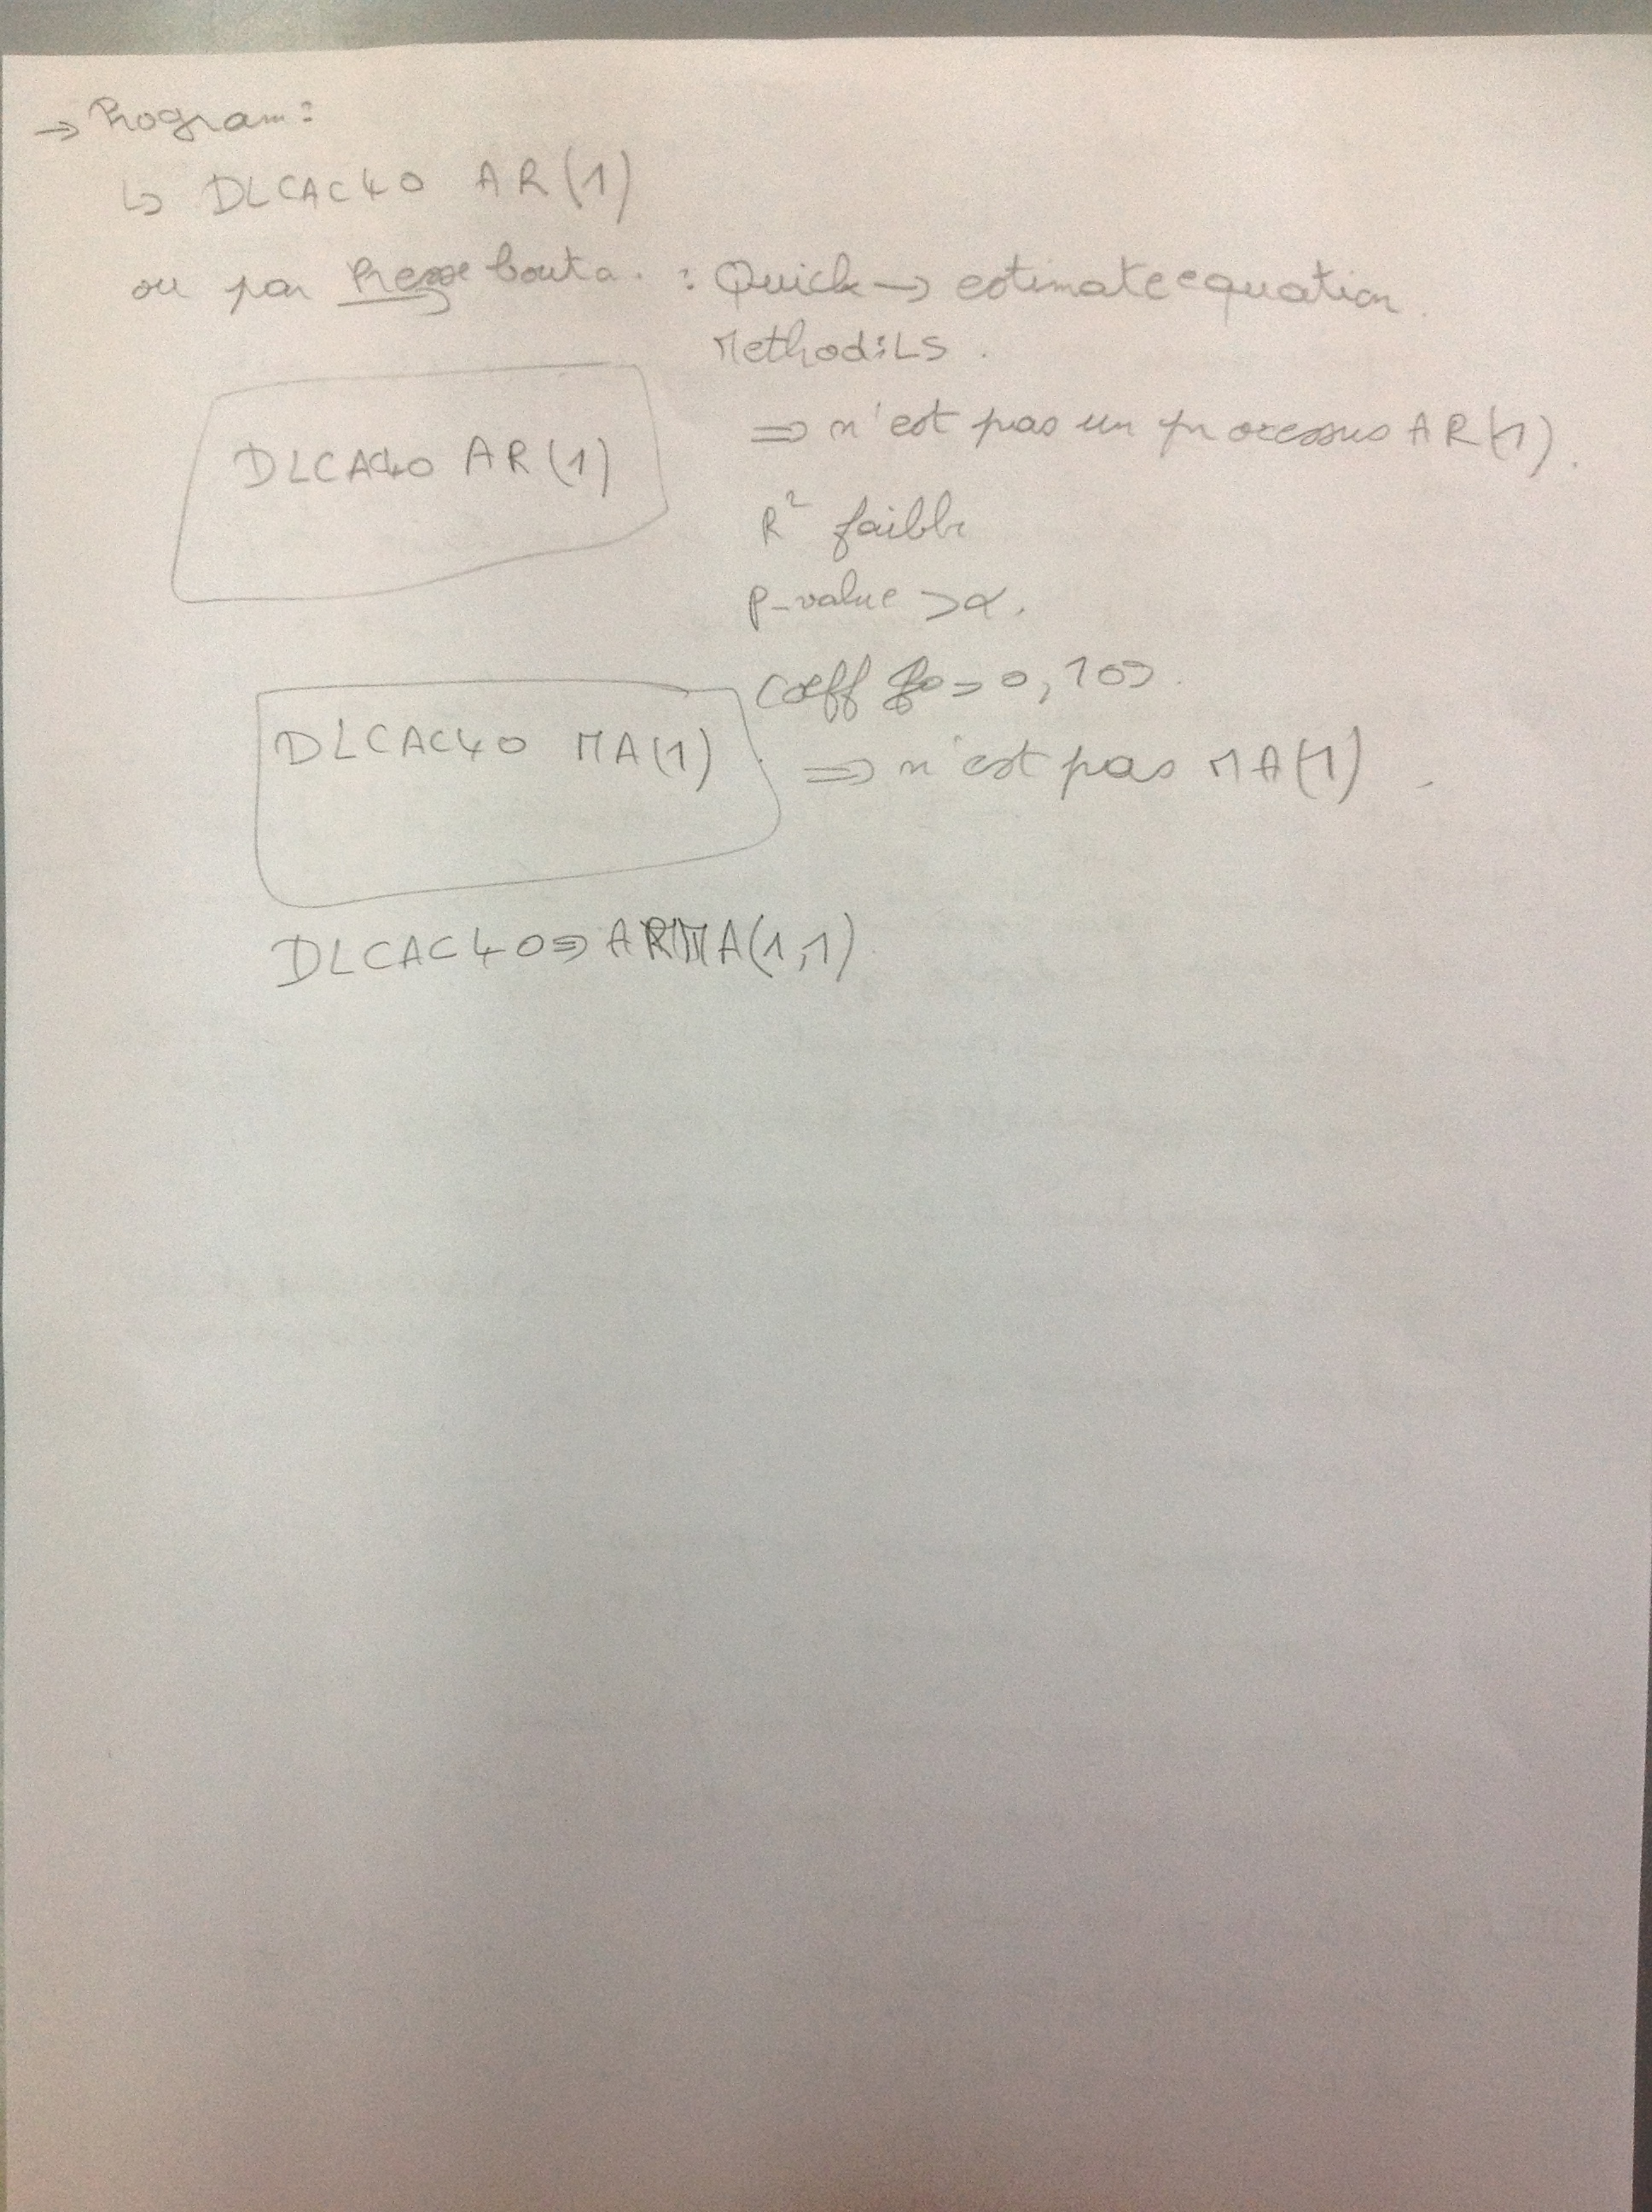 → Program :
↳ DLCAC40 AR(1)
ou par Presse bouton : Quick → estimate equation
Method : LS .
DLCAC40 AR(1)
⇒ n'est pas un processus AR(1).
R² faible
p-value > α .
Coeff
DLCAC40 MA(1) . ⇒ n'est pas MA(1) .
DLCAC40 ⇒ ARMA(1,1)